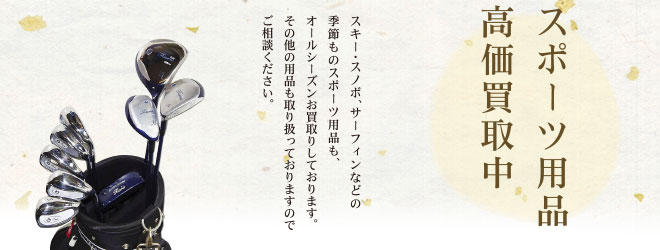 スポーツ用品
高価買取中
スキー・スノボ、サーフィンなどの
季節ものスポーツ用品も、
オールシーズンお買取りしております。
その他の用品も取り扱っておりますので
ご相談ください。